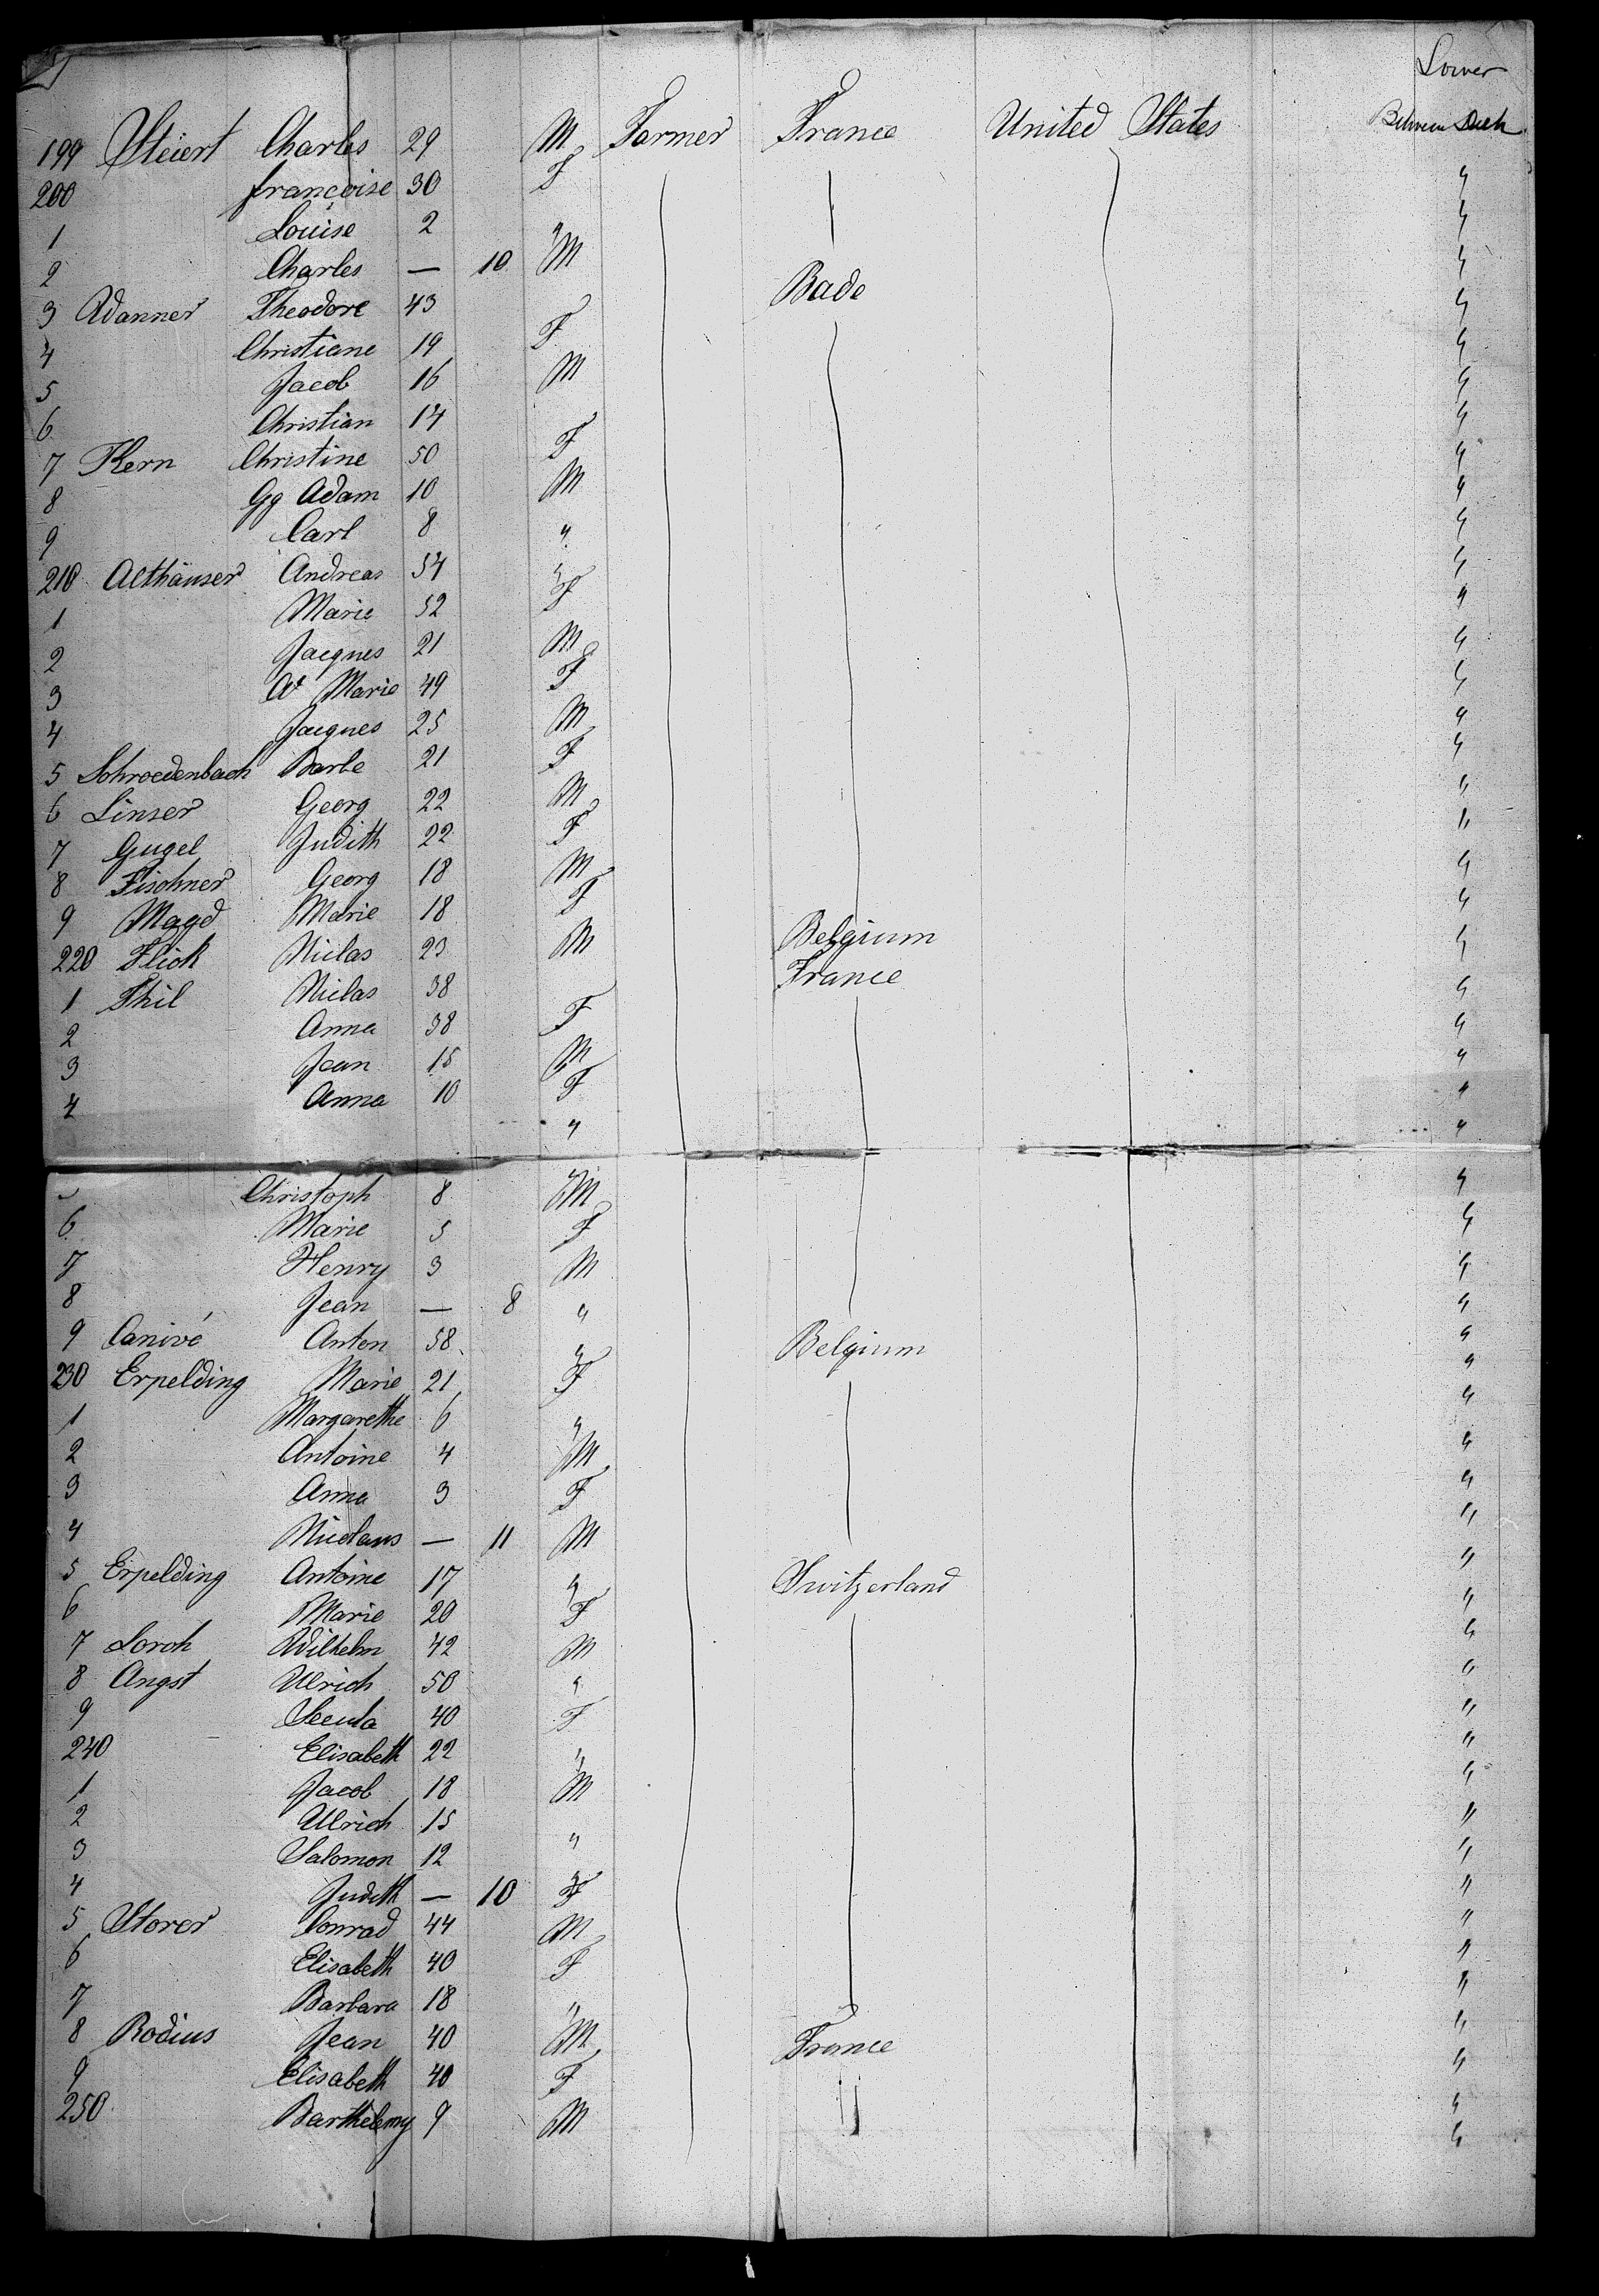 Lower
199 Steiert Charles 29 M Farmer France United States Between Deck
200 françoise 30 F "
1 Louise 2 " "
2 Charles — 10 M "
3 Adanner Theodore 43 Bade "
4 Christiane 19 F "
5 Jacob 16 M "
6 Christian 14 "
7 Kern Christine 50 F "
8 Gg Adam 10 M "
9 Carl 8 " "
210 Althäuser Andreas 54 " "
1 Marie 52 F "
2 Jacques 21 M "
3 Marie 49 F "
4 Jacques 25 M "
5 Schroedenbach Barbe 21 F "
6 Linser Georg 22 M "
7 Gugel Judith 22 F "
8 Fischner Georg 18 M "
9 Magd Marie 18 F "
220 Flick Niclas 23 M Belgium "
1 Thil Niclas 38 France "
2 Anna 38 F "
3 Jean 15 M "
4 Anna 10 F "
" "
Christoph 8 M "
6 Marie 5 F "
7 Henry 3 M "
8 Jean — 8 " "
9 Canivé Anton 58 " Belgium "
230 Erpelding Marie 21 F "
1 Margarethe 6 " "
2 Antoine 4 M "
3 Anna 3 F "
4 Nicolaus — 11 M "
5 Erpelding Antoine 17 " Switzerland "
6 Marie 20 F "
7 Lorch Wilhelm 42 M "
8 Angst Ulrich 50 " "
9 40 F "
240 Elisabeth 22 " "
1 Jacob 18 M "
2 Ulrich 15 "
3 Salomon 12 " "
4 Judith — 10 F "
5 Storer Conrad 44 M "
6 Elisabeth 40 F "
7 Barbara 18 " "
8 Rodius Jean 40 M France "
9 Elisabeth 40 F " "
250 Barthelemy 9 M "